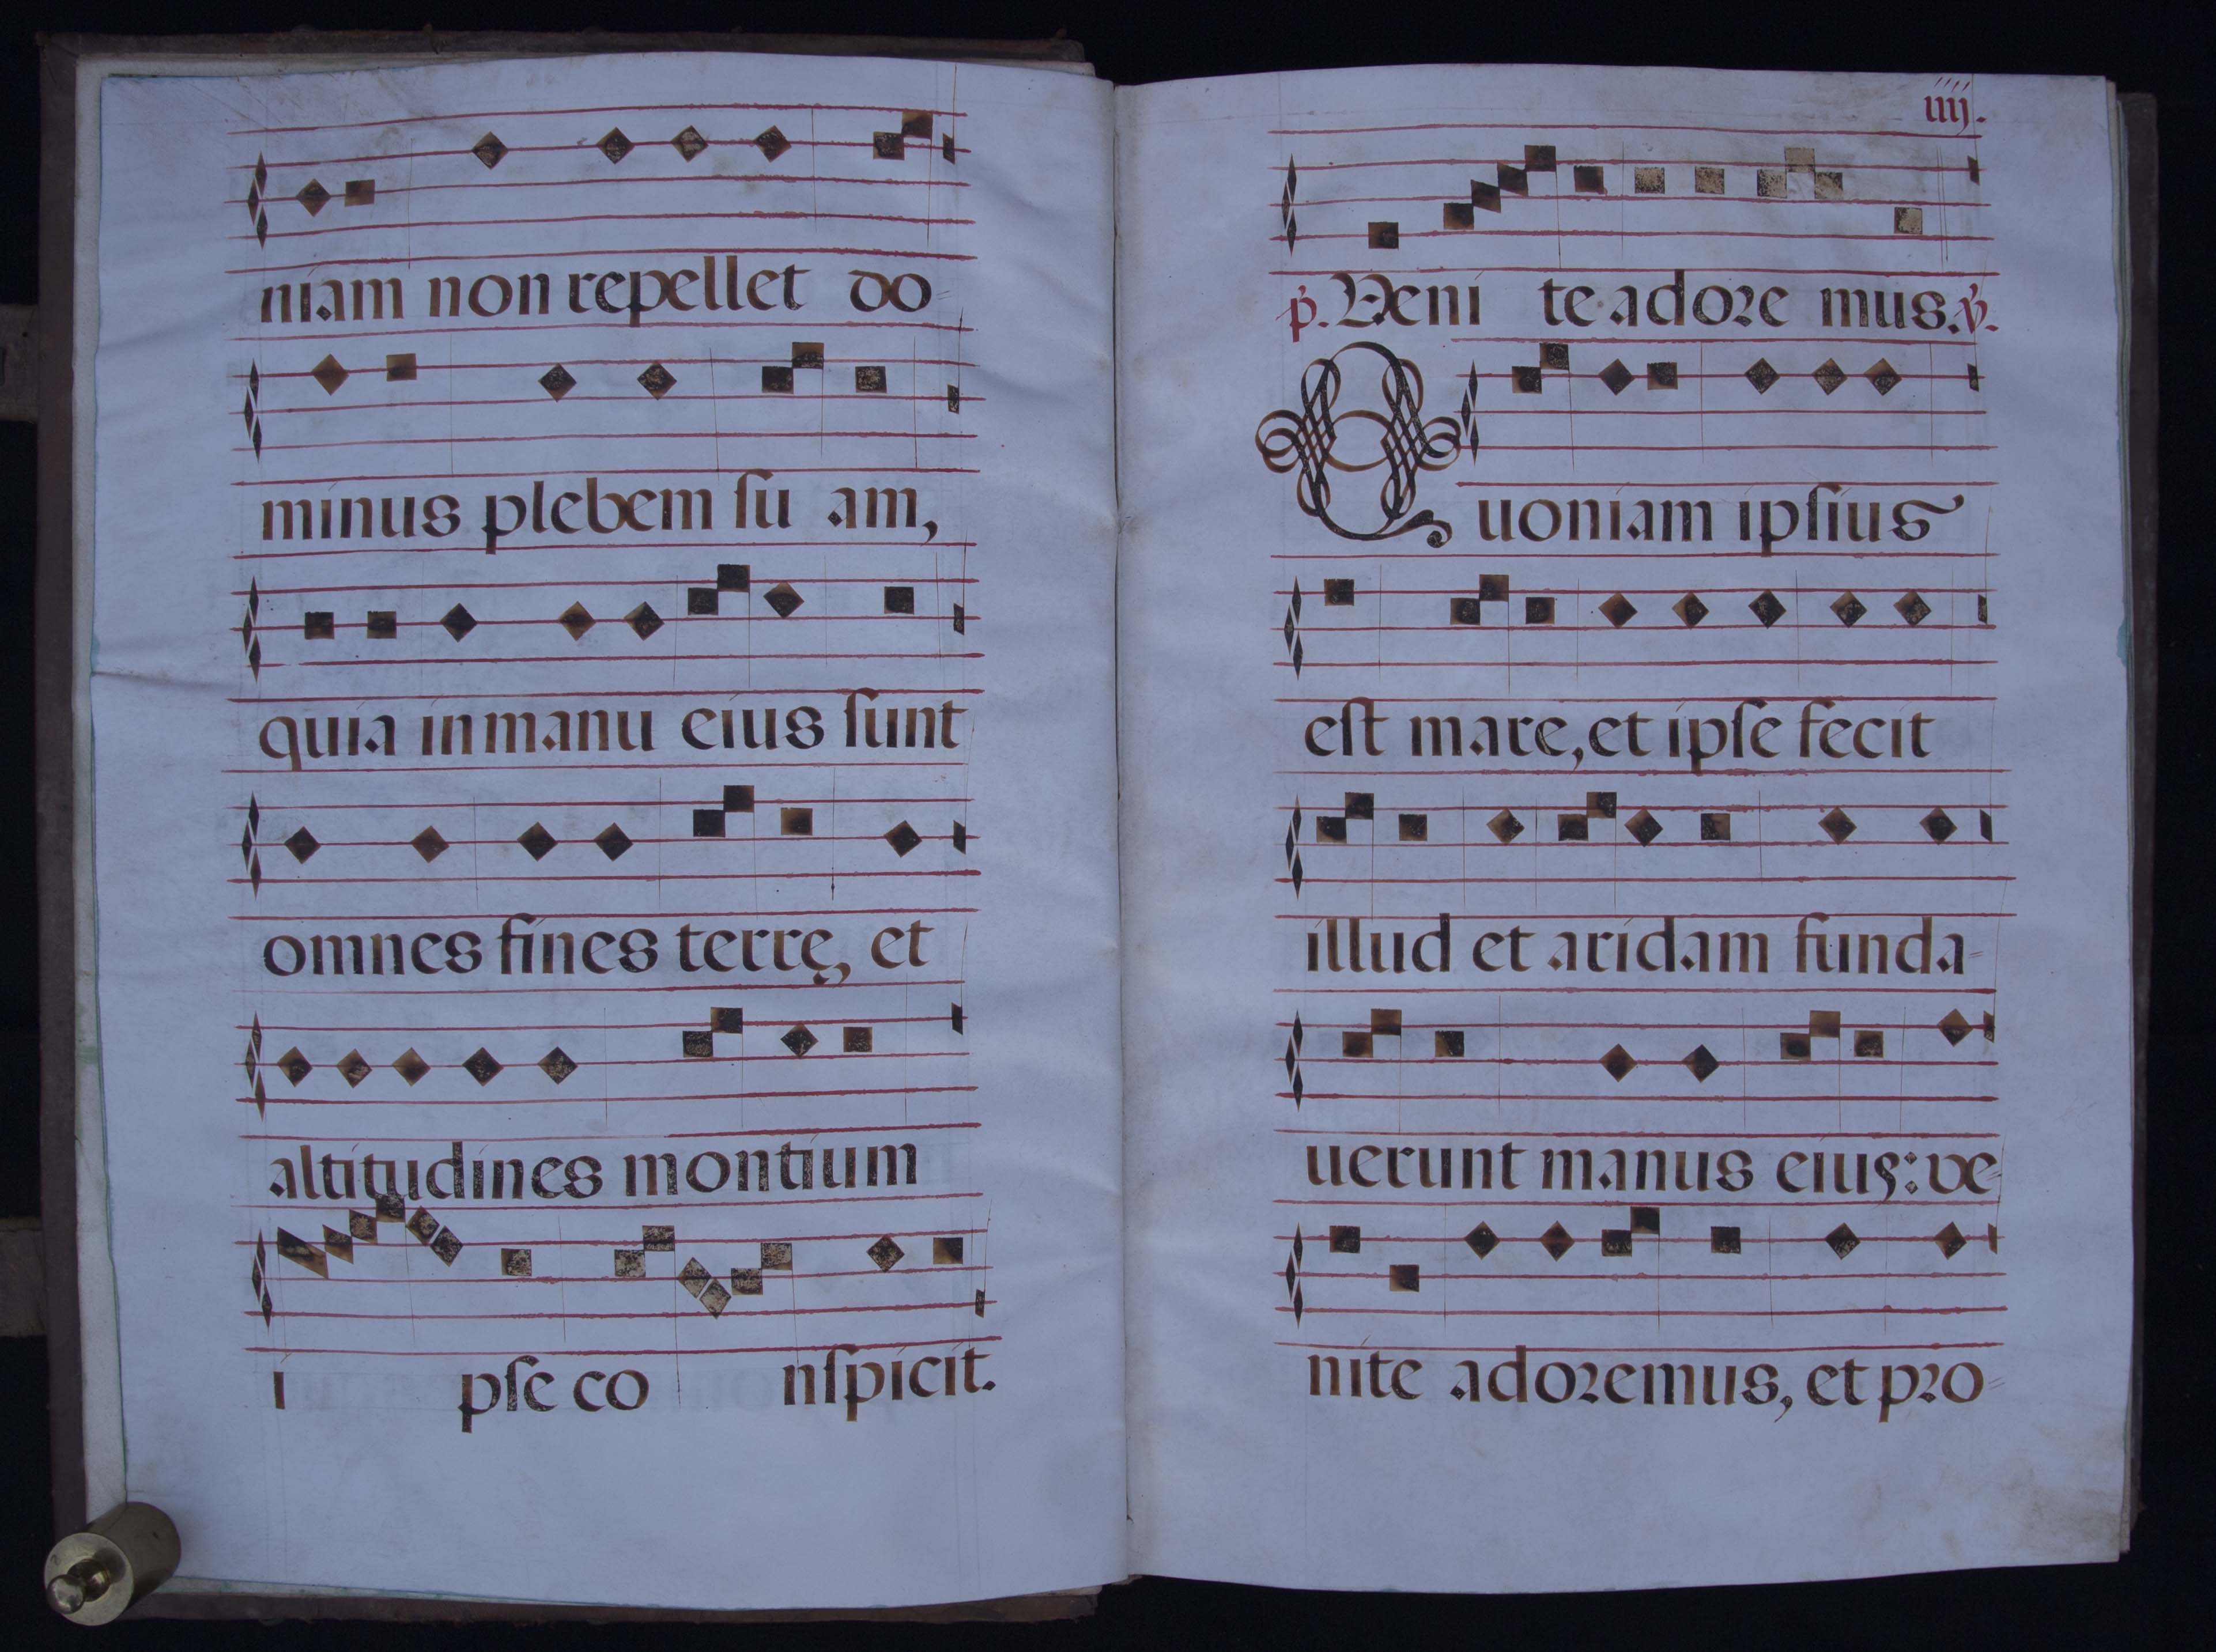 niam non repellet do=
minus plebem ſu am,
quia in manu eius ſunt
omnes fines terrę, et
altitudines montium
i pſe co nſpicit.
iiij.
p. Veni te adore mus. ℣.
Quoniam ipſius
eſt mare, et ipſe fecit
illud et aridam funda=
uerunt manus eius: ve=
nite adoremus, et pro=